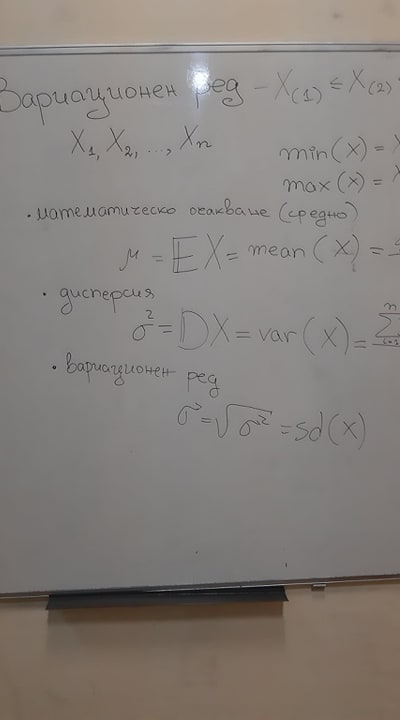 Вариационен ред - X(1) ≤ X(2)
X1, X2, ..., Xn
min(x) = X
max(x) = X
· математическо очакване (средно)
μ = EX = mean(X) =
· дисперсия
σ² = DX = var(X) = n Σ i=1
· вариационен ред
σ = √σ² = sd(X)